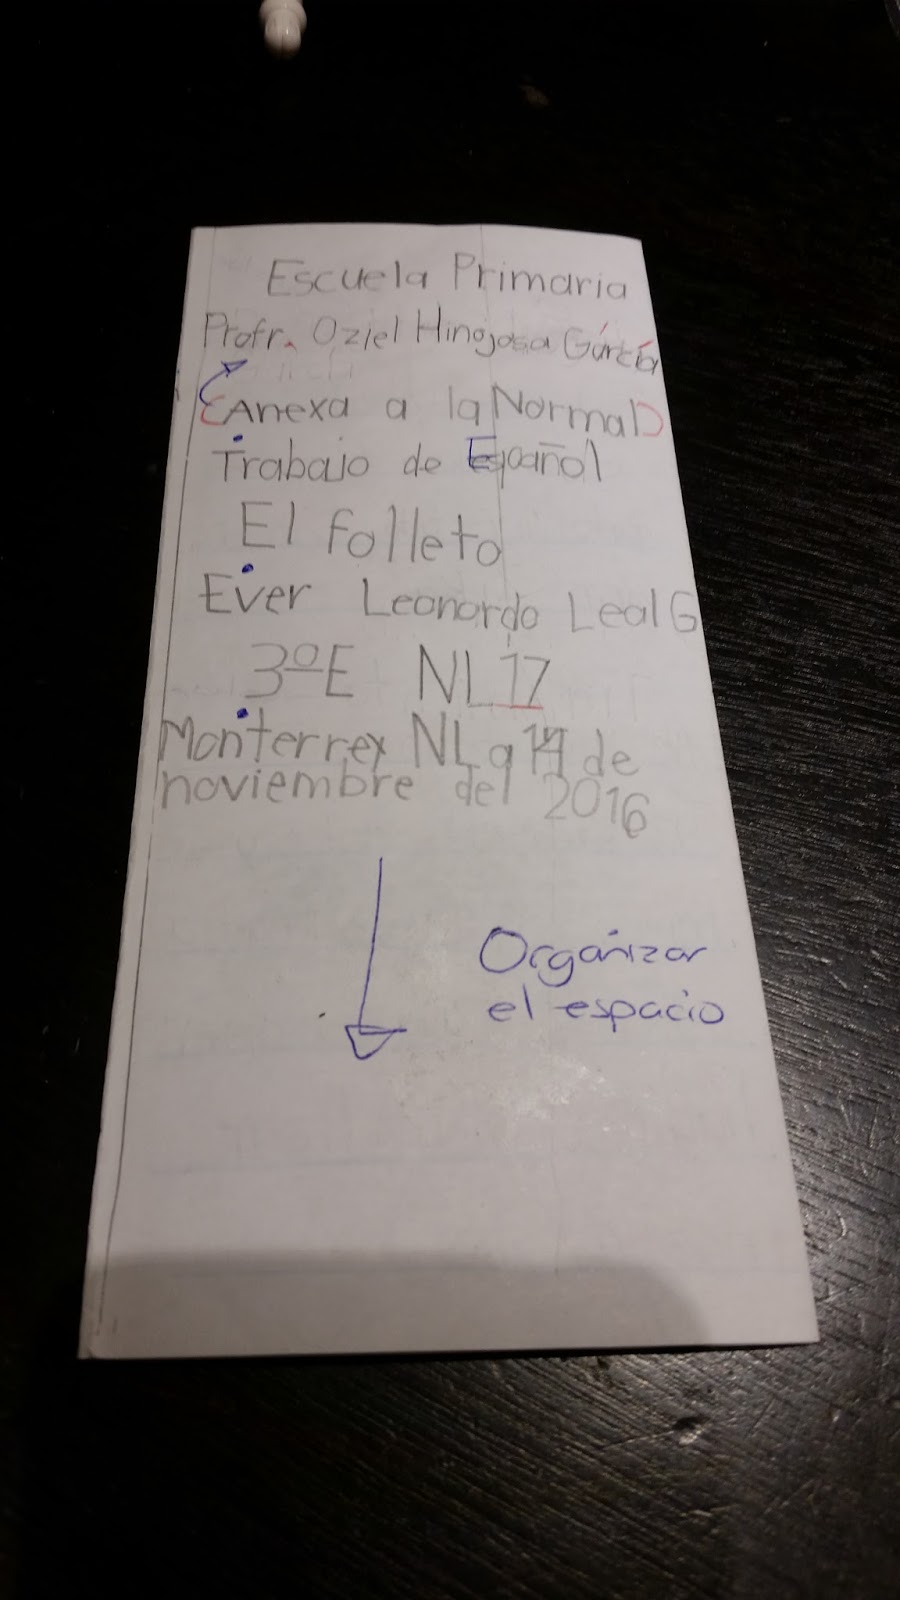 Escuela Primaria
Profr. Oziel Hinojosa García
(Anexa a la Normal)
Trabajo de Español
El folleto
Ever Leonardo Leal G
3ºE NL 17
Monterrey NL a 14 de
noviembre del 2016
Organizar
el espacio